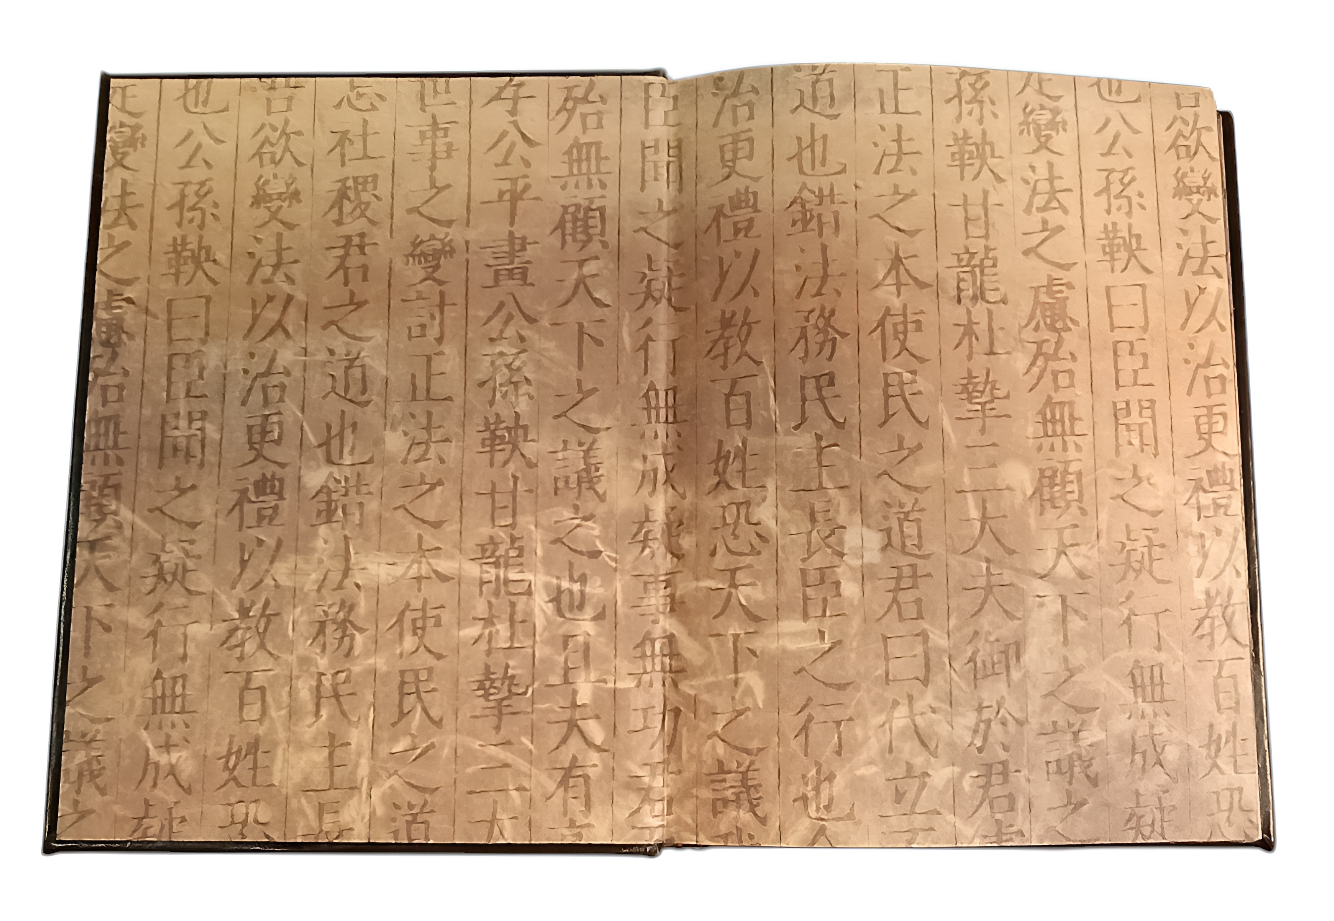 吾欲變法以治更禮以教百姓恐
也公孫鞅曰臣聞之疑行無成疑
定變法之慮殆無顧天下之議之
孫鞅甘龍杜摯三大夫御於君慮
正法之本使民之道君曰代立不
道也錯法務民主長臣之行也今
治更禮以教百姓恐天下之議我
臣聞之疑行無成疑事無功君
殆無顧天下之議之也且夫有高
孝公平畫公孫鞅甘龍杜摯三大
世事之變討正法之本使民之道
忘社稷君之道也錯法務民主長
吾欲變法以治更禮以教百姓恐
也公孫鞅曰臣聞之疑行無成疑
定變法之慮殆無顧天下之議之